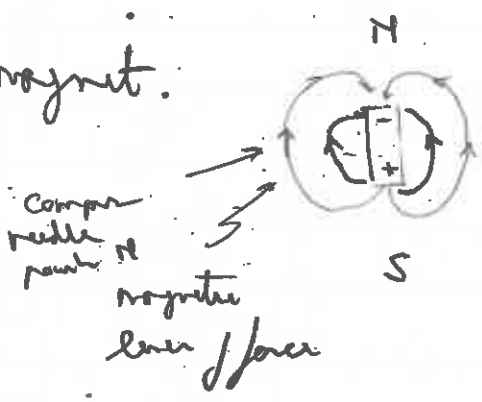 magnet.
N
-
+
S
Compass
needle
points N
magnetic
lines of force